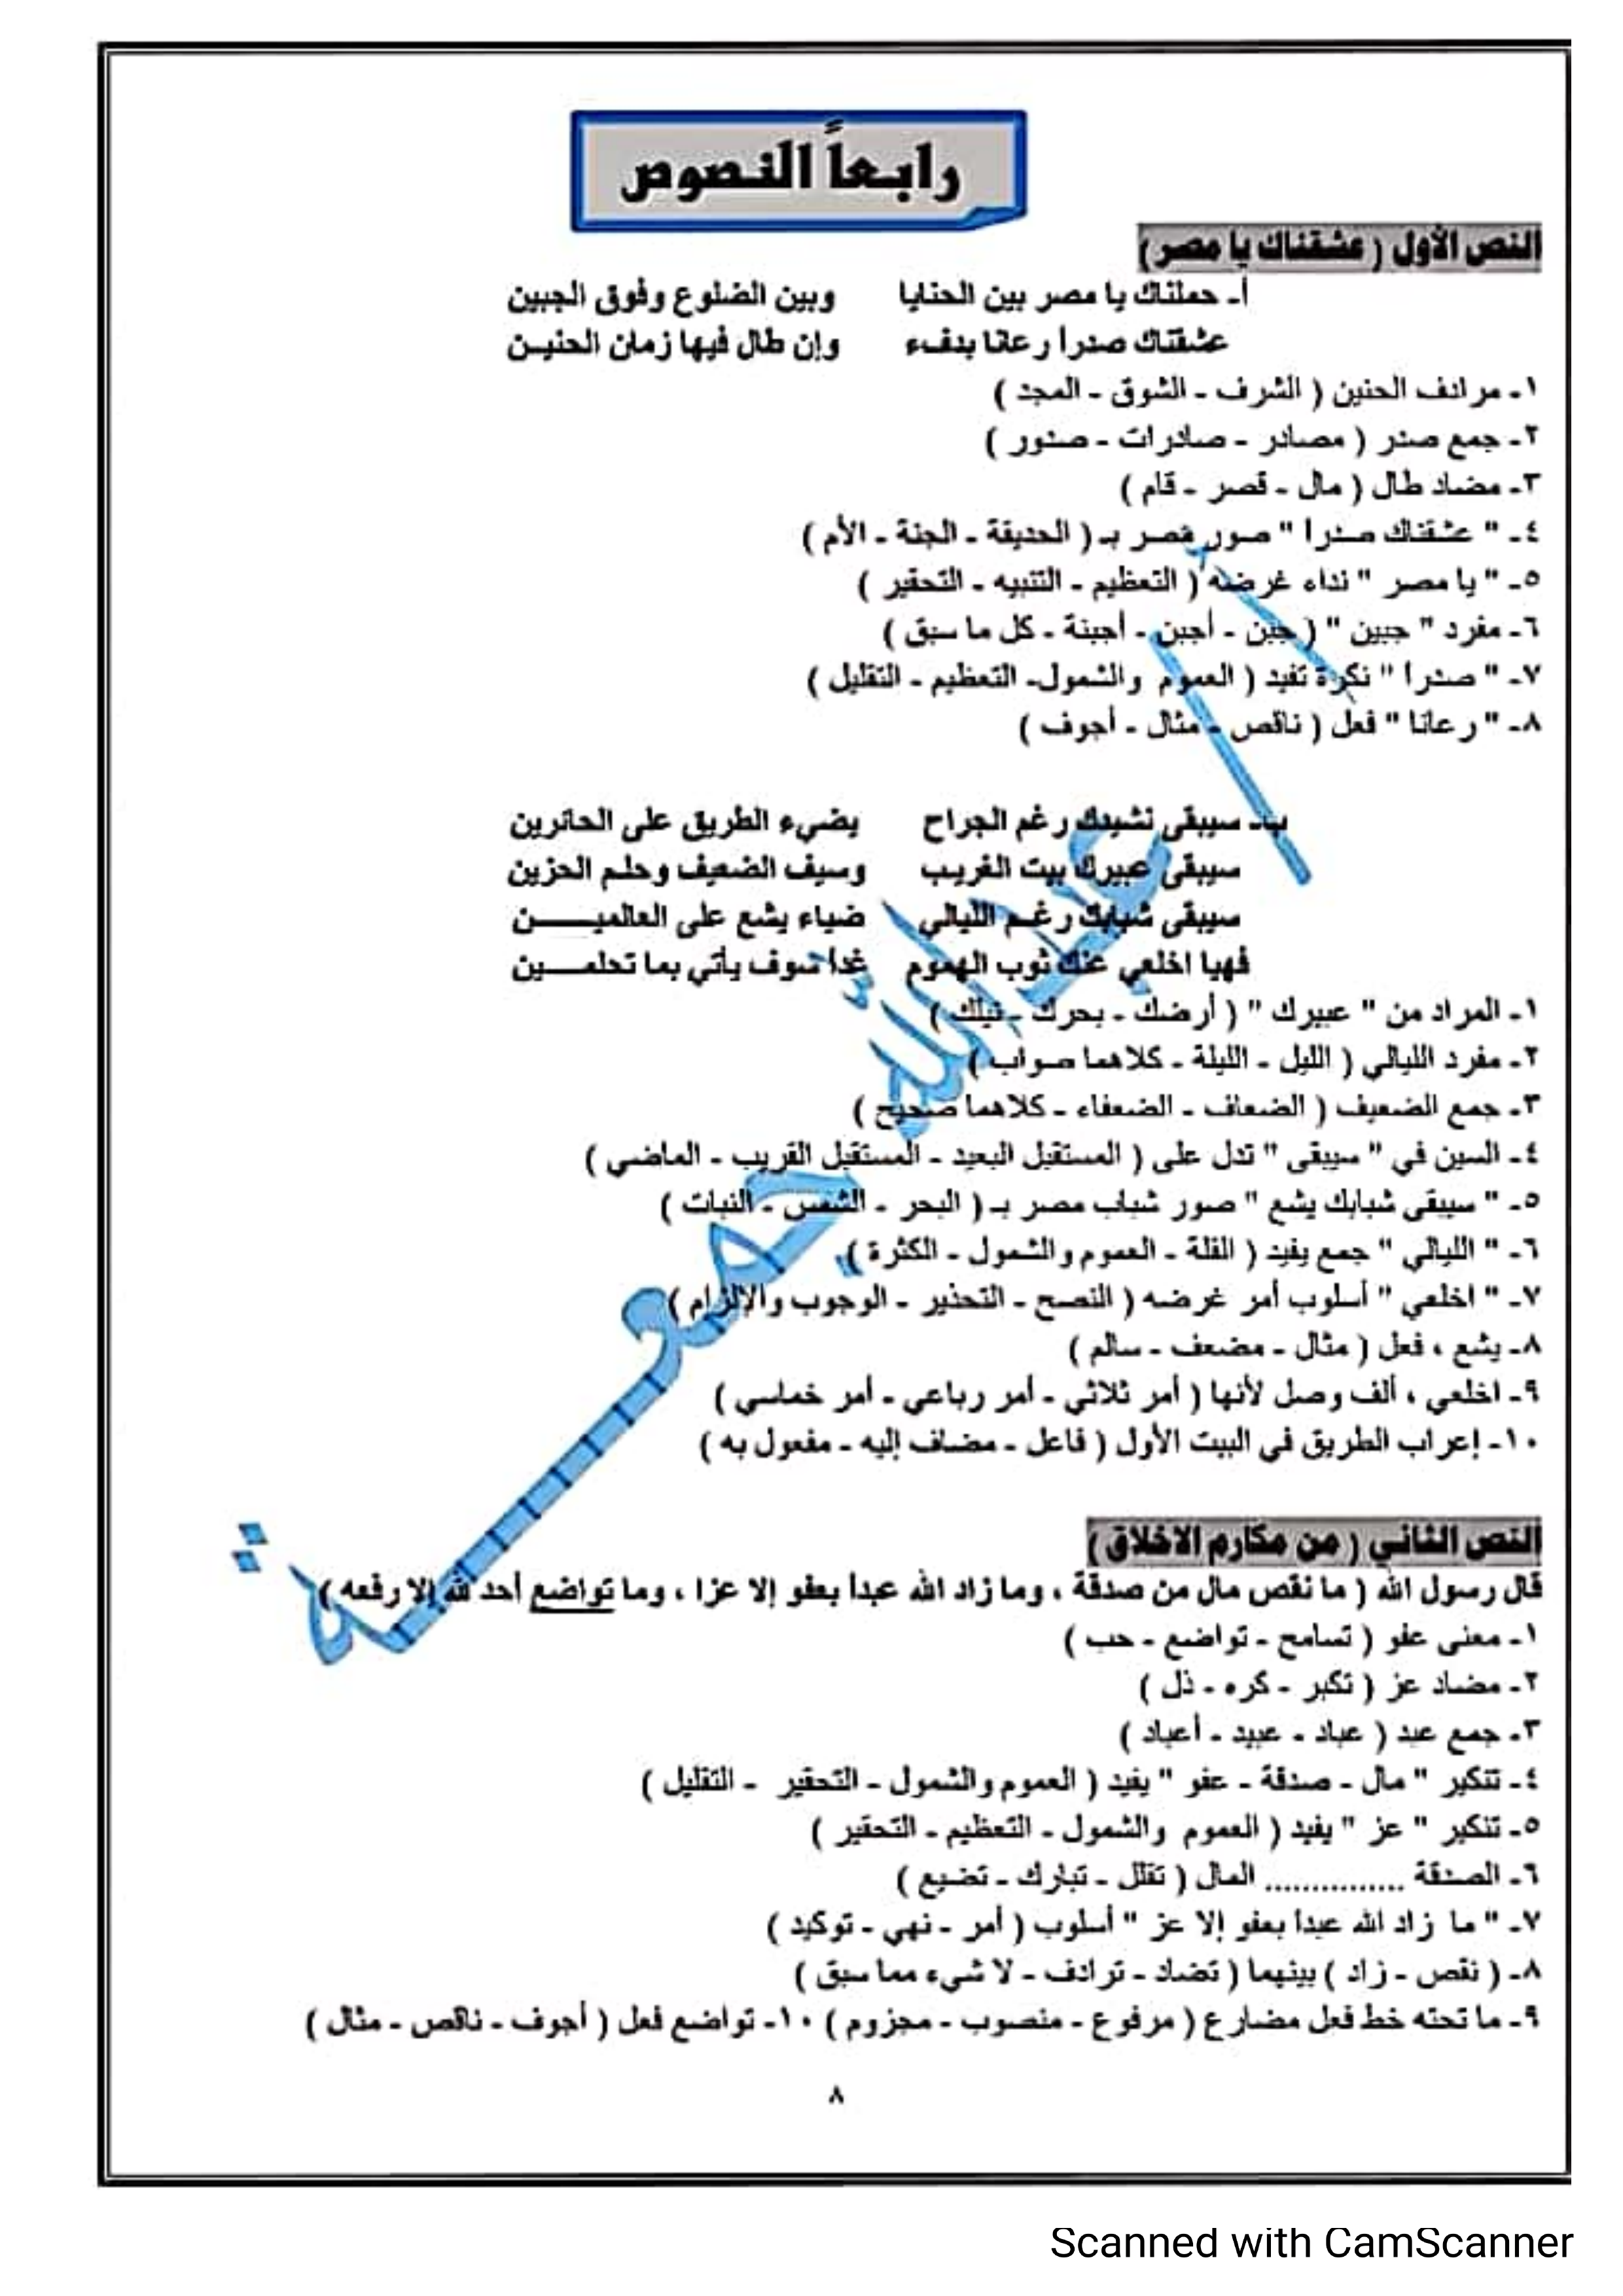 رابعاً النصوص
النص الأول ( عشقناك يا مصر )
أ- حملناك يا مصر بين الحنايا وبين الضلوع وفوق الجبين
عشقناك صدراً رعانا بدفء وإن طال فيها زمان الحنيـن
١- مرادف الحنين ( الشرف - الشوق - المجد )
٢- جمع صدر ( مصادر - صادرات - صدور )
٣- مضاد طال ( مال - قصر - قام )
٤- " عشقناك صدراً " صور مصر بـ ( الحديقة - الجنة - الأم )
٥- " يا مصر " نداء غرضه ( التعظيم - التنبيه - التحقير )
٦- مفرد " جبين " ( جبن - أجبن - أجبنة - كل ما سبق )
٧- " صدراً " نكرة تفيد ( العموم والشمول- التعظيم - التقليل )
٨- " رعانا " فعل ( ناقص - مثال - أجوف )
ب- سيبقى نشيدك رغم الجراح يضيء الطريق على الحائرين
سيبقى عبيرك بيت الغريب وسيف الضعيف وحلم الحزين
سيبقى شبابك رغم الليالي ضياء يشع على العالميـــــن
فهيا اخلعي عنك ثوب الهموم غداً سوف يأتي بما تحلمـــين
١- المراد من " عبيرك " ( أرضك - بحرك - نيلك )
٢- مفرد الليالي ( الليل - الليلة - كلاهما صواب )
٣- جمع الضعيف ( الضعاف - الضعفاء - كلاهما صحيح )
٤- السين في " سيبقى " تدل على ( المستقبل البعيد - المستقبل القريب - الماضي )
٥- " سيبقى شبابك يشع " صور شباب مصر بـ ( البحر - الشمس - النبات )
٦- " الليالي " جمع يفيد ( القلة - العموم والشمول - الكثرة )
٧- " اخلعي " أسلوب أمر غرضه ( النصح - التحذير - الوجوب والإلزام )
٨- يشع ، فعل ( مثال - مضعف - سالم )
٩- اخلعي ، ألف وصل لأنها ( أمر ثلاثي - أمر رباعي - أمر خماسي )
١٠- إعراب الطريق في البيت الأول ( فاعل - مضاف إليه - مفعول به )
النص الثاني ( من مكارم الاخلاق )
قال رسول الله ( ما نقص مال من صدقة ، وما زاد الله عبداً بعفو إلا عزا ، وما تواضع أحد لله إلا رفعه )
١- معنى عفو ( تسامح - تواضع - حب )
٢- مضاد عز ( تكبر - كره - ذل )
٣- جمع عبد ( عباد - عبيد - أعباد )
٤- تنكير " مال - صدقة - عفو " يفيد ( العموم والشمول - التحقير - التقليل )
٥- تنكير " عز " يفيد ( العموم والشمول - التعظيم - التحقير )
٦- الصدقة ............... المال ( تقلل - تبارك - تضيع )
٧- " ما زاد الله عبداً بعفو إلا عز " أسلوب ( أمر - نهي - توكيد )
٨- ( نقص - زاد ) بينهما ( تضاد - ترادف - لا شيء مما سبق )
٩- ما تحته خط فعل مضارع ( مرفوع - منصوب - مجزوم ) ١٠- تواضع فعل ( أجوف - ناقص - مثال )
٨
أ / عبدالله جمعة
Scanned with CamScanner